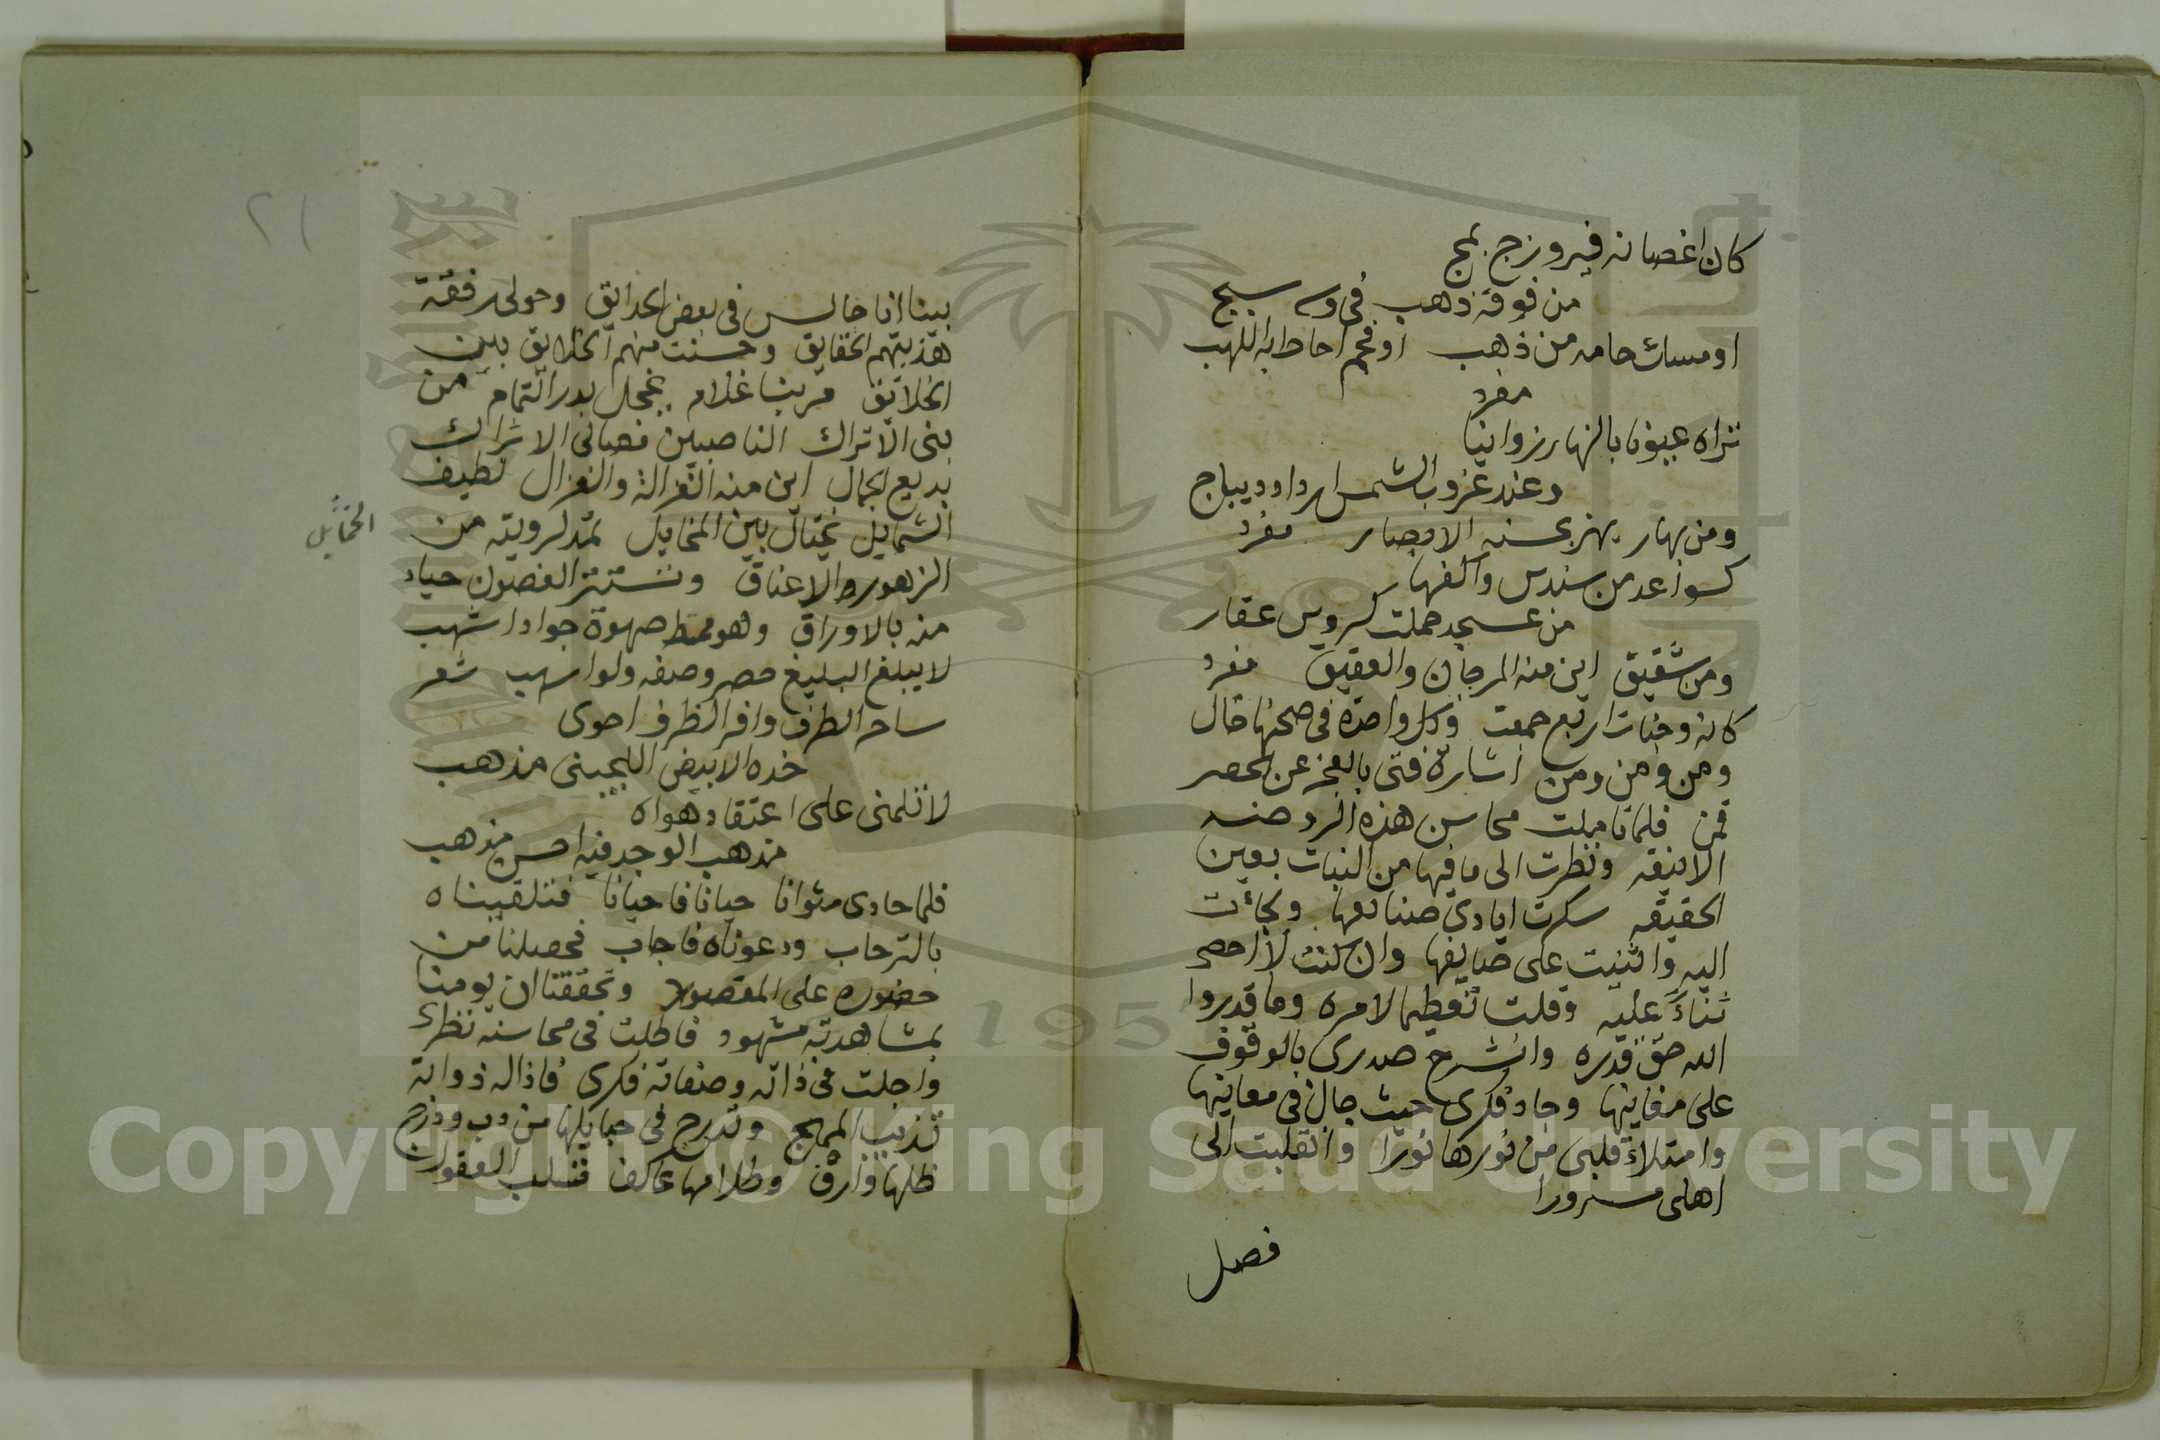 كان اغصانه فيروزج بهج
من فوقه ذهب في وسطه سبج
او مسك حامه من ذهب او فحم احاط به اللهب
مفرد
تراه عيونا بالنهار روانيا
وعند غروب الشمس ازرار ديباج
ومن بهار يهزبحسنه الابصار مفرد
كسواعد من سندس واكفها
من عسجد حملت كروس عقار
ومن شقيق اين منه المرجان والعقيق مفرد
كانه وجنات اربع جمعت وكل واحدة في صحنها خال
ومن ومن ومن اشارة فتى بالعجز عن الحصر
قمن فلما تاملت محاسن هذه الروضه
الانيقه ونظرت الى ما فيها من النبات بعين
الحقيقه سكرت ايادي صنايعها ولجأت
اليه واثنيت على صايفها وان كنت لا احصى
ثناءً عليه وقلت تعظيما لامره وما قدروا
الله حق قدره وانشرح صدرى بالوقوف
على مغانيها وجاد فكرى حيث جال في معانيها
وامتلاء قلبى من نورها نورا وانقلبت الى
اهلى مسرورا
فصل
٢١
بينا انا جالس فى بعض الحدايق وحولى رفقة
هذبتهم الحقايق وحسنت منهم الخلايق بين
الخلايق مر بنا غلام يخجل بدر التمام من
بنى الاتراك الناصبين فصانى الاشراك
بديع الجمال اين منه الغزالة والغزال لطيف
الشمايل يختال بين المخايل تمد لرويته من
الخمايل
الزهور الاعناق وتستتر الغصون حياء
منه بالاوراق وهو ممتط صهوة جواد اشهب
لا يبلغ البليغ حصر وصفه ولو اسهب شعر
ساحر الطرف وافر الظرف احوى
خده الابيض اللجينى مذهب
لا تلمنى على اعتقاد هواه
مذهب الوجد فيه احسن مذهب
فلما حاذى مثوانا حيانا فاحيانا فتلقيناه
بالترحاب ودعوناه فاجاب فحصلنا من
حضوره على المقصود وتحققنا ان يومنا
بمشاهدته مشهود فاطلت في محاسنه نظرى
واجلت في ذاته وصفاته فكرى فاذا له ذوابة
تذيب المهج وتدرج في حبايلها من دب ودرج
ظلها وارف وظلامها عاكف فتسلب العقول
Copyright © King Saud University
195